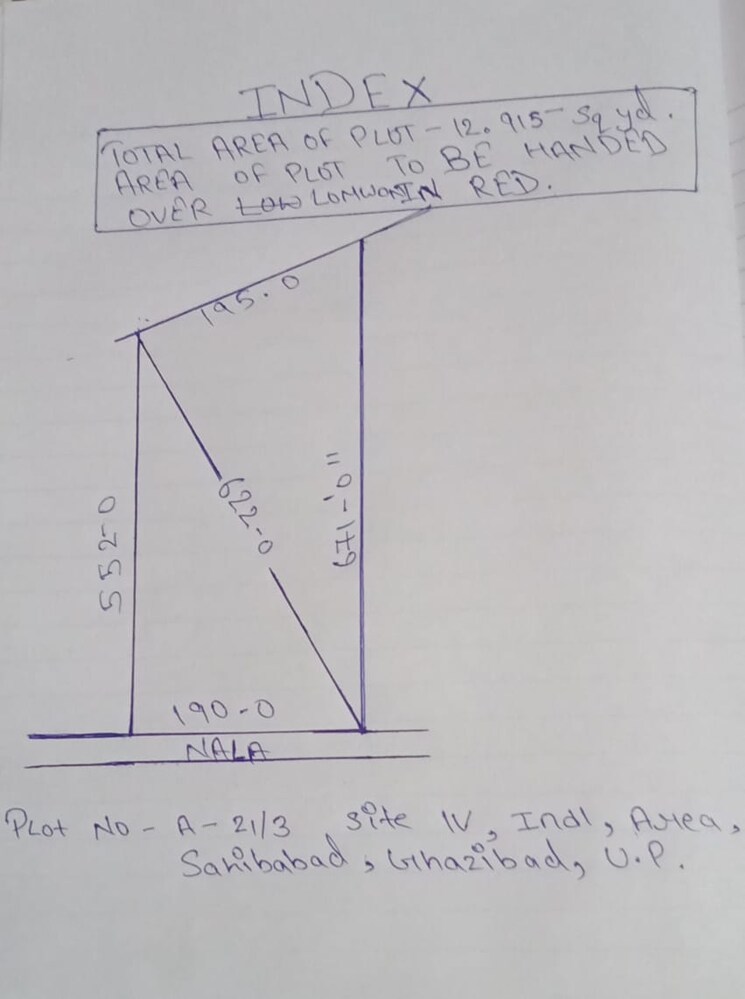 INDEX
TOTAL AREA OF PLOT - 12.915 Sq yd.
AREA OF PLOT TO BE HANDED
OVER IN RED.
195.0
552-0
622-0
671-'0"
190-0
NALA
PLot NO - A-21/3 Site IV, Indl, Area,
Sahibabad, Ghazibad, U.P.